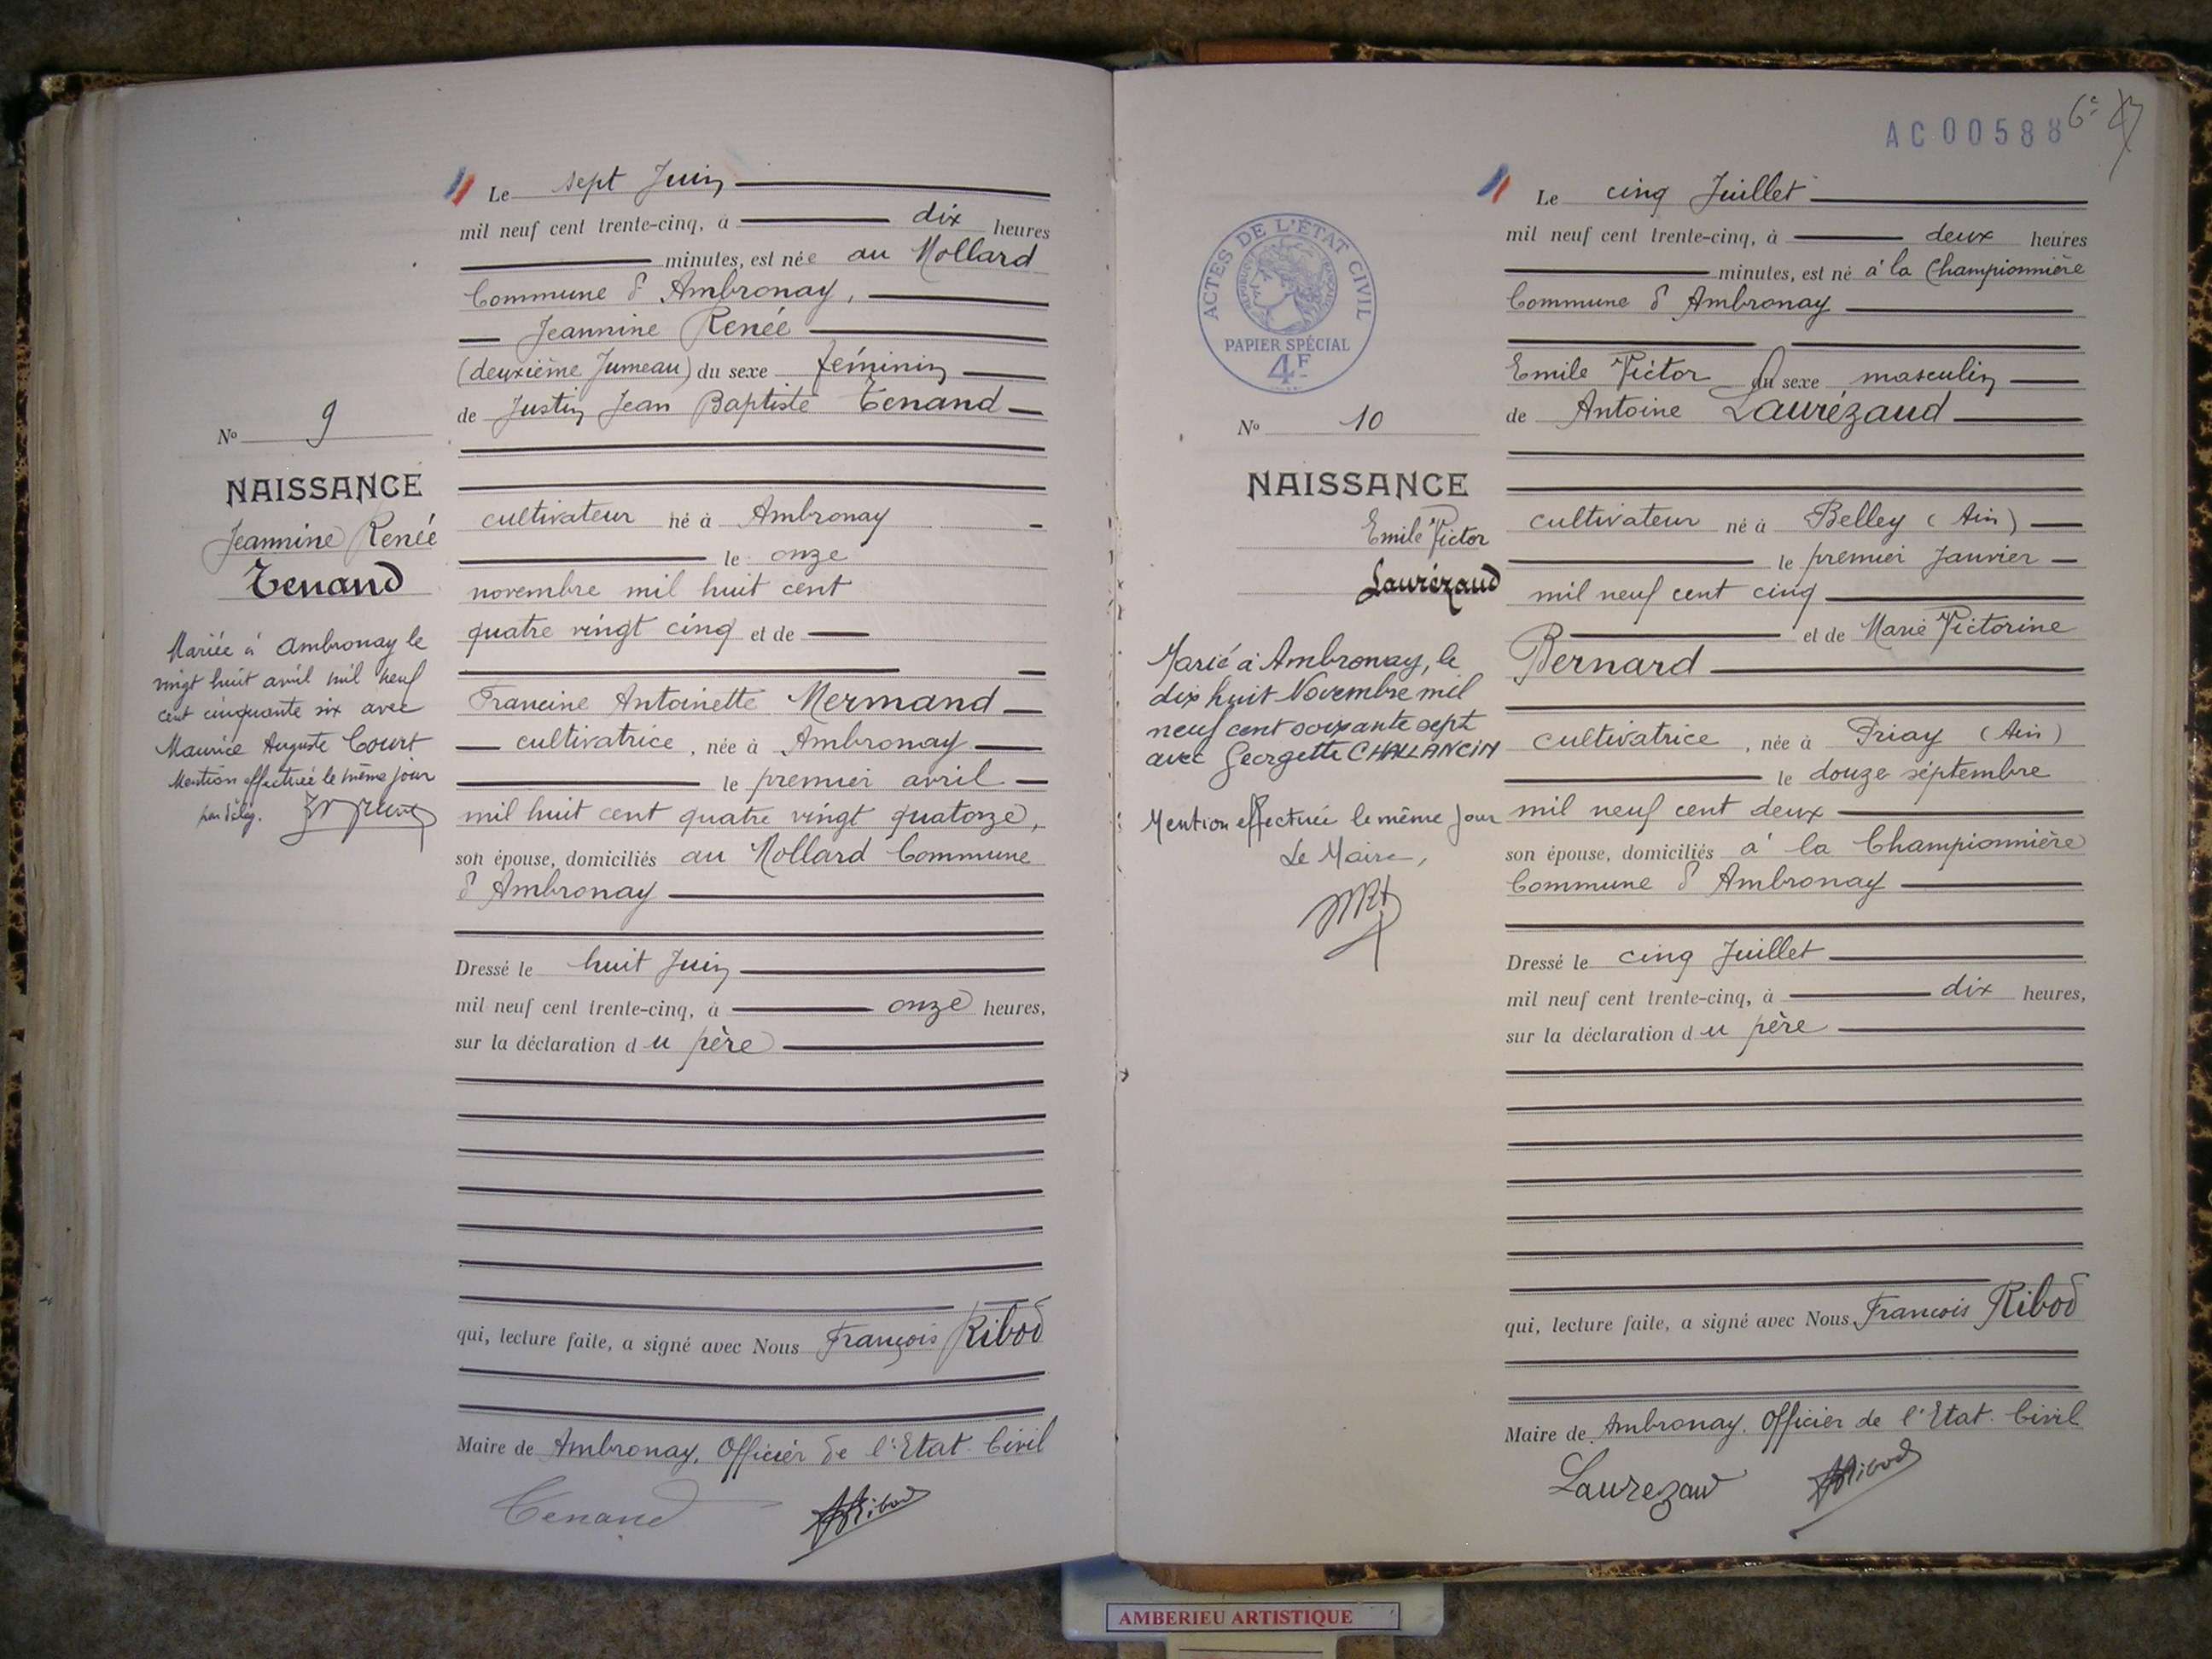 Le sept Juin
mil neuf cent trente-cinq, à dix heures
minutes, est née au Mollard
Commune d'Ambronay,
Jeannine Renée
(deuxième Jumeau) du sexe féminin
de Justin Jean Baptiste Tenand
No 9
NAISSANCE
Jeannine Renée
Tenand
Mariée à Ambronay le
vingt huit avril mil neuf
cent cinquante six avec
Maurice Auguste Court
Mention effectuée le même jour
par délég.
cultivateur né à Ambronay
le onze
novembre mil huit cent
quatre vingt cinq et de
Francine Antoinette Mermand
cultivatrice, née à Ambronay
le premier avril
mil huit cent quatre vingt quatorze,
son épouse, domiciliés au Mollard Commune
d'Ambronay
Dressé le huit Juin
mil neuf cent trente-cinq, à onze heures,
sur la déclaration du père
qui, lecture faite, a signé avec Nous François Ribod
Maire de Ambronay, Officier de l'Etat-Civil
Tenand Ribod
AC00588 6e
ACTES DE L'ÉTAT CIVIL
RÉPUBLIQUE FRANÇAISE
PAPIER SPÉCIAL
4F
Le cinq Juillet
mil neuf cent trente-cinq, à deux heures
minutes, est né à la Championnière
Commune d'Ambronay
Emile Victor du sexe masculin
de Antoine Laurézaud
No 10
NAISSANCE
Emile Victor
Laurézaud
Marié à Ambronay, le
dix huit Novembre mil
neuf cent soixante sept
avec Georgette CHALLANCIN
Mention effectuée le même jour
Le Maire,
cultivateur né à Belley (Ain)
le premier Janvier
mil neuf cent cinq
et de Marie Victorine
Bernard
cultivatrice, née à Priay (Ain)
le douze septembre
mil neuf cent deux
son épouse, domiciliés à la Championnière
Commune d'Ambronay
Dressé le cinq Juillet
mil neuf cent trente-cinq, à dix heures,
sur la déclaration du père
qui, lecture faite, a signé avec Nous Francois Ribod
Maire de Ambronay. Officier de l'Etat-Civil
Laurezaud Ribod
AMBERIEU ARTISTIQUE